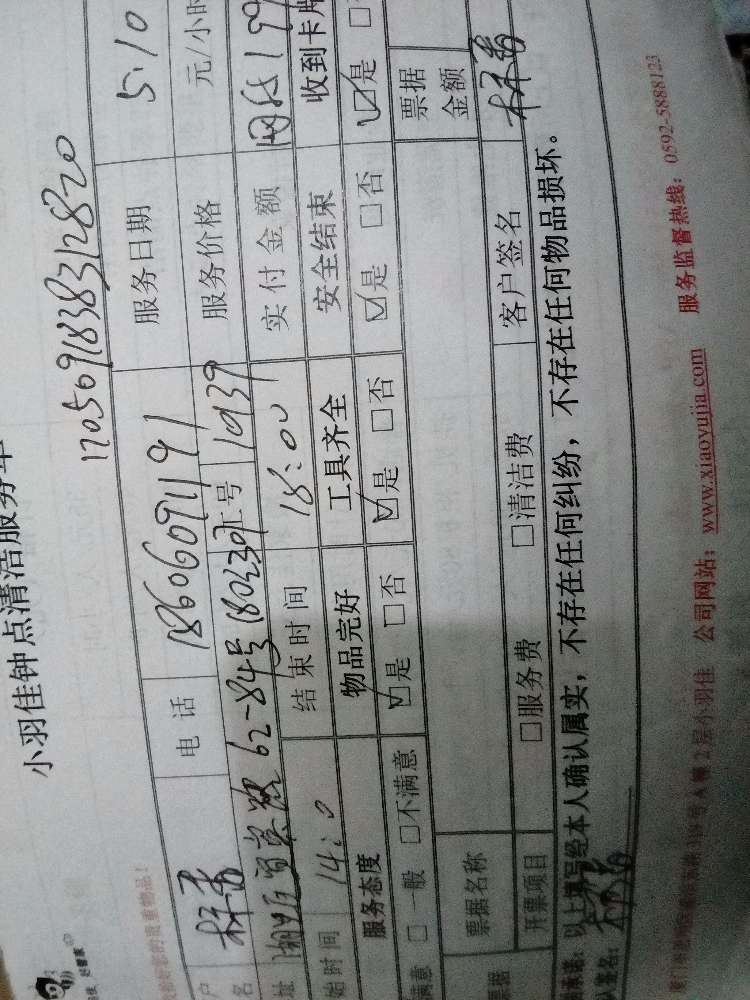 小羽佳钟点清洁服务单
1705091838312820
电话 18606091191 服务日期 5.10
名
工号 1939 服务价格 元/小时
址 62-84号1802307
始时间 14:0 结束时间 18:00 实付金额 199
服务态度 物品完好 工具齐全 安全结束 收到卡片
满意 □一般 □不满意 ☑是 □否 ☑是 □否 ☑是 □否 ☑是
票据 票据名称 票据金额
开票项目 □服务费 □清洁费 客户签名
承诺：以上填写经本人确认属实，不存在任何纠纷，不存在任何物品损坏。
签名：
A幢2层小羽佳 公司网站：www.xiaoyujia.com 服务监督热线：0592-5888123